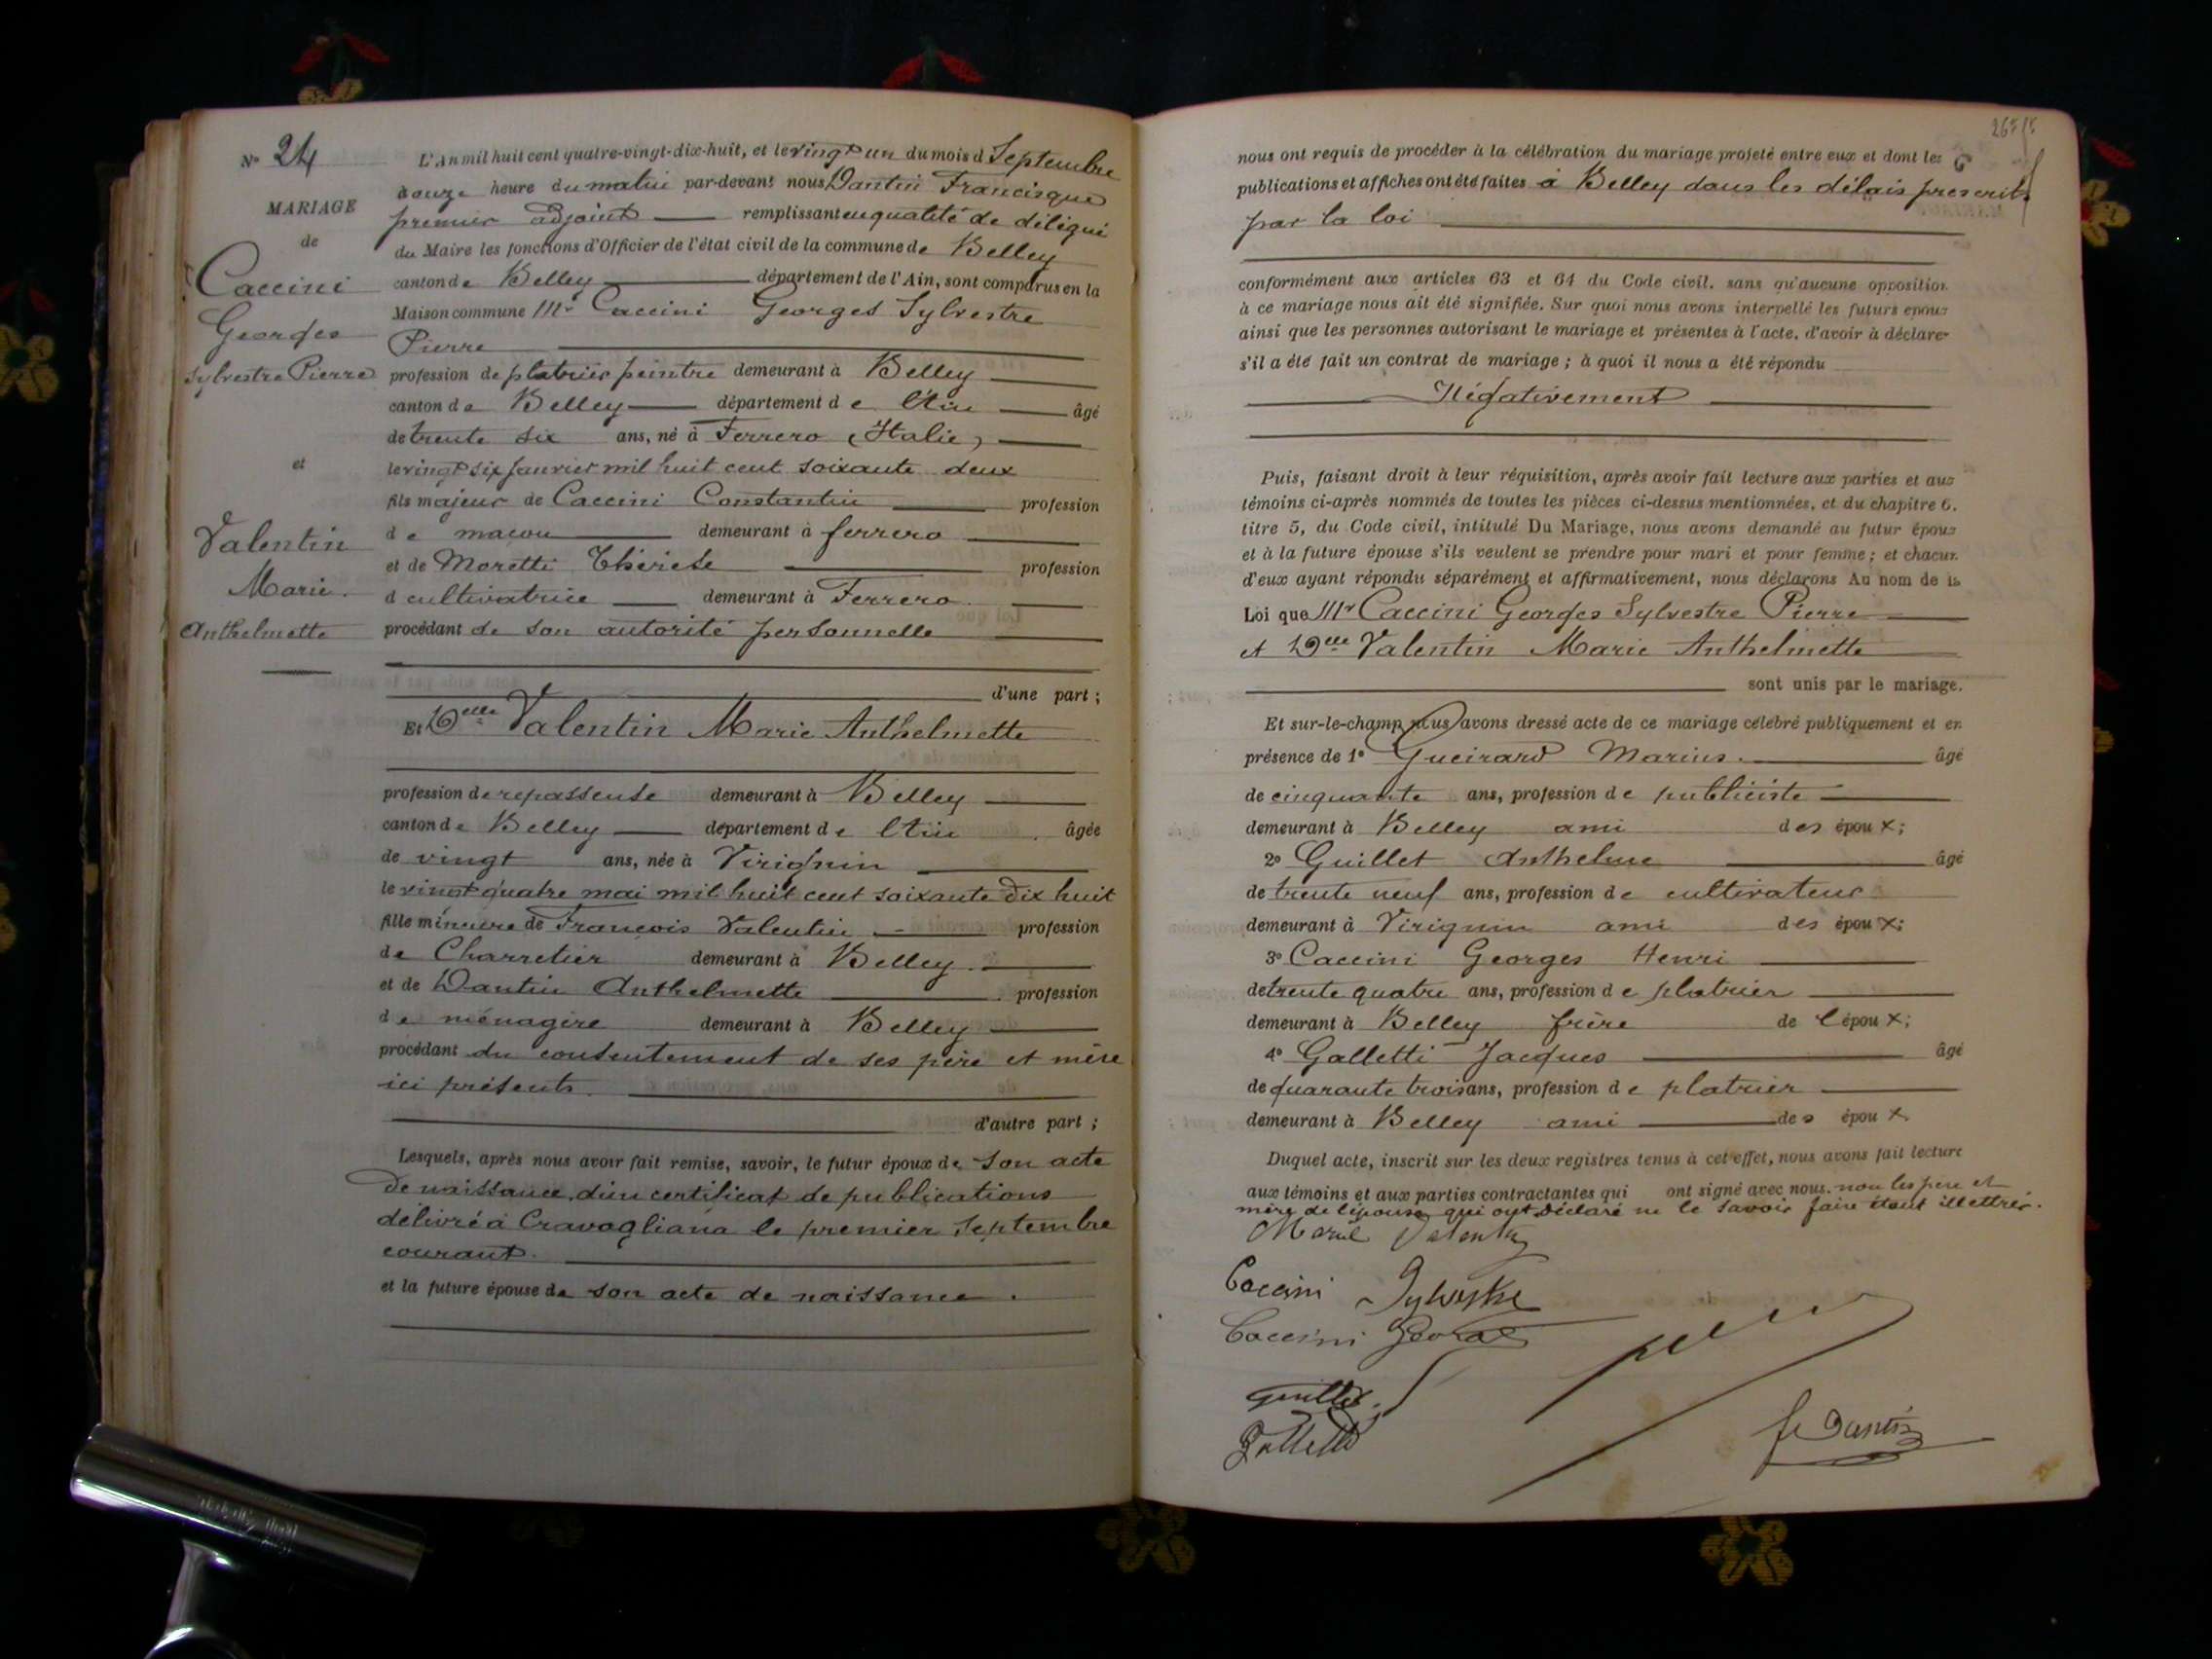 N° 24
MARIAGE
de
Caccini
Georges
Sylvestre Pierre
et
Valentin
Marie
Anthelmette
L'An mil huit cent quatre-vingt-dix-huit, et le vingt un du mois d Septembre
à onze heure du matin par-devant nous Dantin Francisque
premier adjoint remplissant en qualité de délégué
du Maire les fonctions d'Officier de l'état civil de la commune de Belley
canton de Belley département de l'Ain, sont comparus en la
Maison commune Mr Caccini Georges Sylvestre
Pierre
profession de platrier peintre demeurant à Belley
canton de Belley département de l'Ain âgé
de trente six ans, né à Ferrero (Italie)
le vingt six janvier mil huit cent soixante deux
fils majeur de Caccini Constantin profession
de maçon demeurant à ferrero
et de Moretti Thérèse profession
d cultivatrice demeurant à Ferrero
procédant de son autorité personnelle
d'une part ;
Et Delle Valentin Marie Anthelmette
profession de repasseuse demeurant à Belley
canton de Belley département de l'Ain âgée
de vingt ans, née à Virignin
le vingt quatre mai mil huit cent soixante dix huit
fille mineure de François Valentin profession
de Charretier demeurant à Belley
et de Dantin Anthelmette profession
de ménagère demeurant à Belley
procédant du consentement de ses père et mère
ici présents.
d'autre part ;
Lesquels, après nous avoir fait remise, savoir, le futur époux de son acte
de naissance, d'un certificat de publications
délivré à Cravagliana le premier Septembre
courant.
et la future épouse de son acte de naissance.
nous ont requis de procéder à la célébration du mariage projeté entre eux et dont les
publications et affiches ont été faites à Belley dans les délais prescrits
par la loi
conformément aux articles 63 et 64 du Code civil, sans qu'aucune opposition
à ce mariage nous ait été signifiée. Sur quoi nous avons interpellé les futurs epoux
ainsi que les personnes autorisant le mariage et présentes à l'acte, d'avoir à déclarer
s'il a été fait un contrat de mariage ; à quoi il nous a été répondu
Négativement
Puis, faisant droit à leur réquisition, après avoir fait lecture aux parties et aux
témoins ci-après nommés de toutes les pièces ci-dessus mentionnées, et du chapitre 6,
titre 5, du Code civil, intitulé Du Mariage, nous avons demandé au futur époux
et à la future épouse s'ils veulent se prendre pour mari et pour femme ; et chacun
d'eux ayant répondu séparément et affirmativement, nous déclarons Au nom de la
Loi que Mr Caccini Georges Sylvestre Pierre
et Delle Valentin Marie Anthelmette
sont unis par le mariage.
Et sur-le-champ nous avons dressé acte de ce mariage célébré publiquement et en
présence de 1° Gueirard Marius. âgé
de cinquante ans, profession de publiciste
demeurant à Belley ami des époux ;
2° Guillet Anthelme âgé
de trente neuf ans, profession de cultivateur
demeurant à Virignin ami des époux ;
3° Caccini Georges Henri
de trente quatre ans, profession de platrier
demeurant à Belley frère de l'époux ;
4° Galletti Jacques âgé
de quarante trois ans, profession de platrier
demeurant à Belley ami des époux
Duquel acte, inscrit sur les deux registres tenus à cet effet, nous avons fait lecture
aux témoins et aux parties contractantes qui ont signé avec nous. non les père et
mère de l'épouse qui ont déclaré ne le savoir faire étant illettrés.
Marie Valentin
Caccini Sylvestre
Caccini George
Guillet
Galletti
fe Dantin